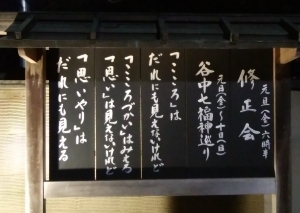 元旦(金)六時半
修正会
元旦(金)～十日(日)
谷中七福神巡り
「こころ」は
だれにも見えないけれど
「こころづかい」はみえる
「思い」は見えないけれど
「思いやり」は
だれにも見える